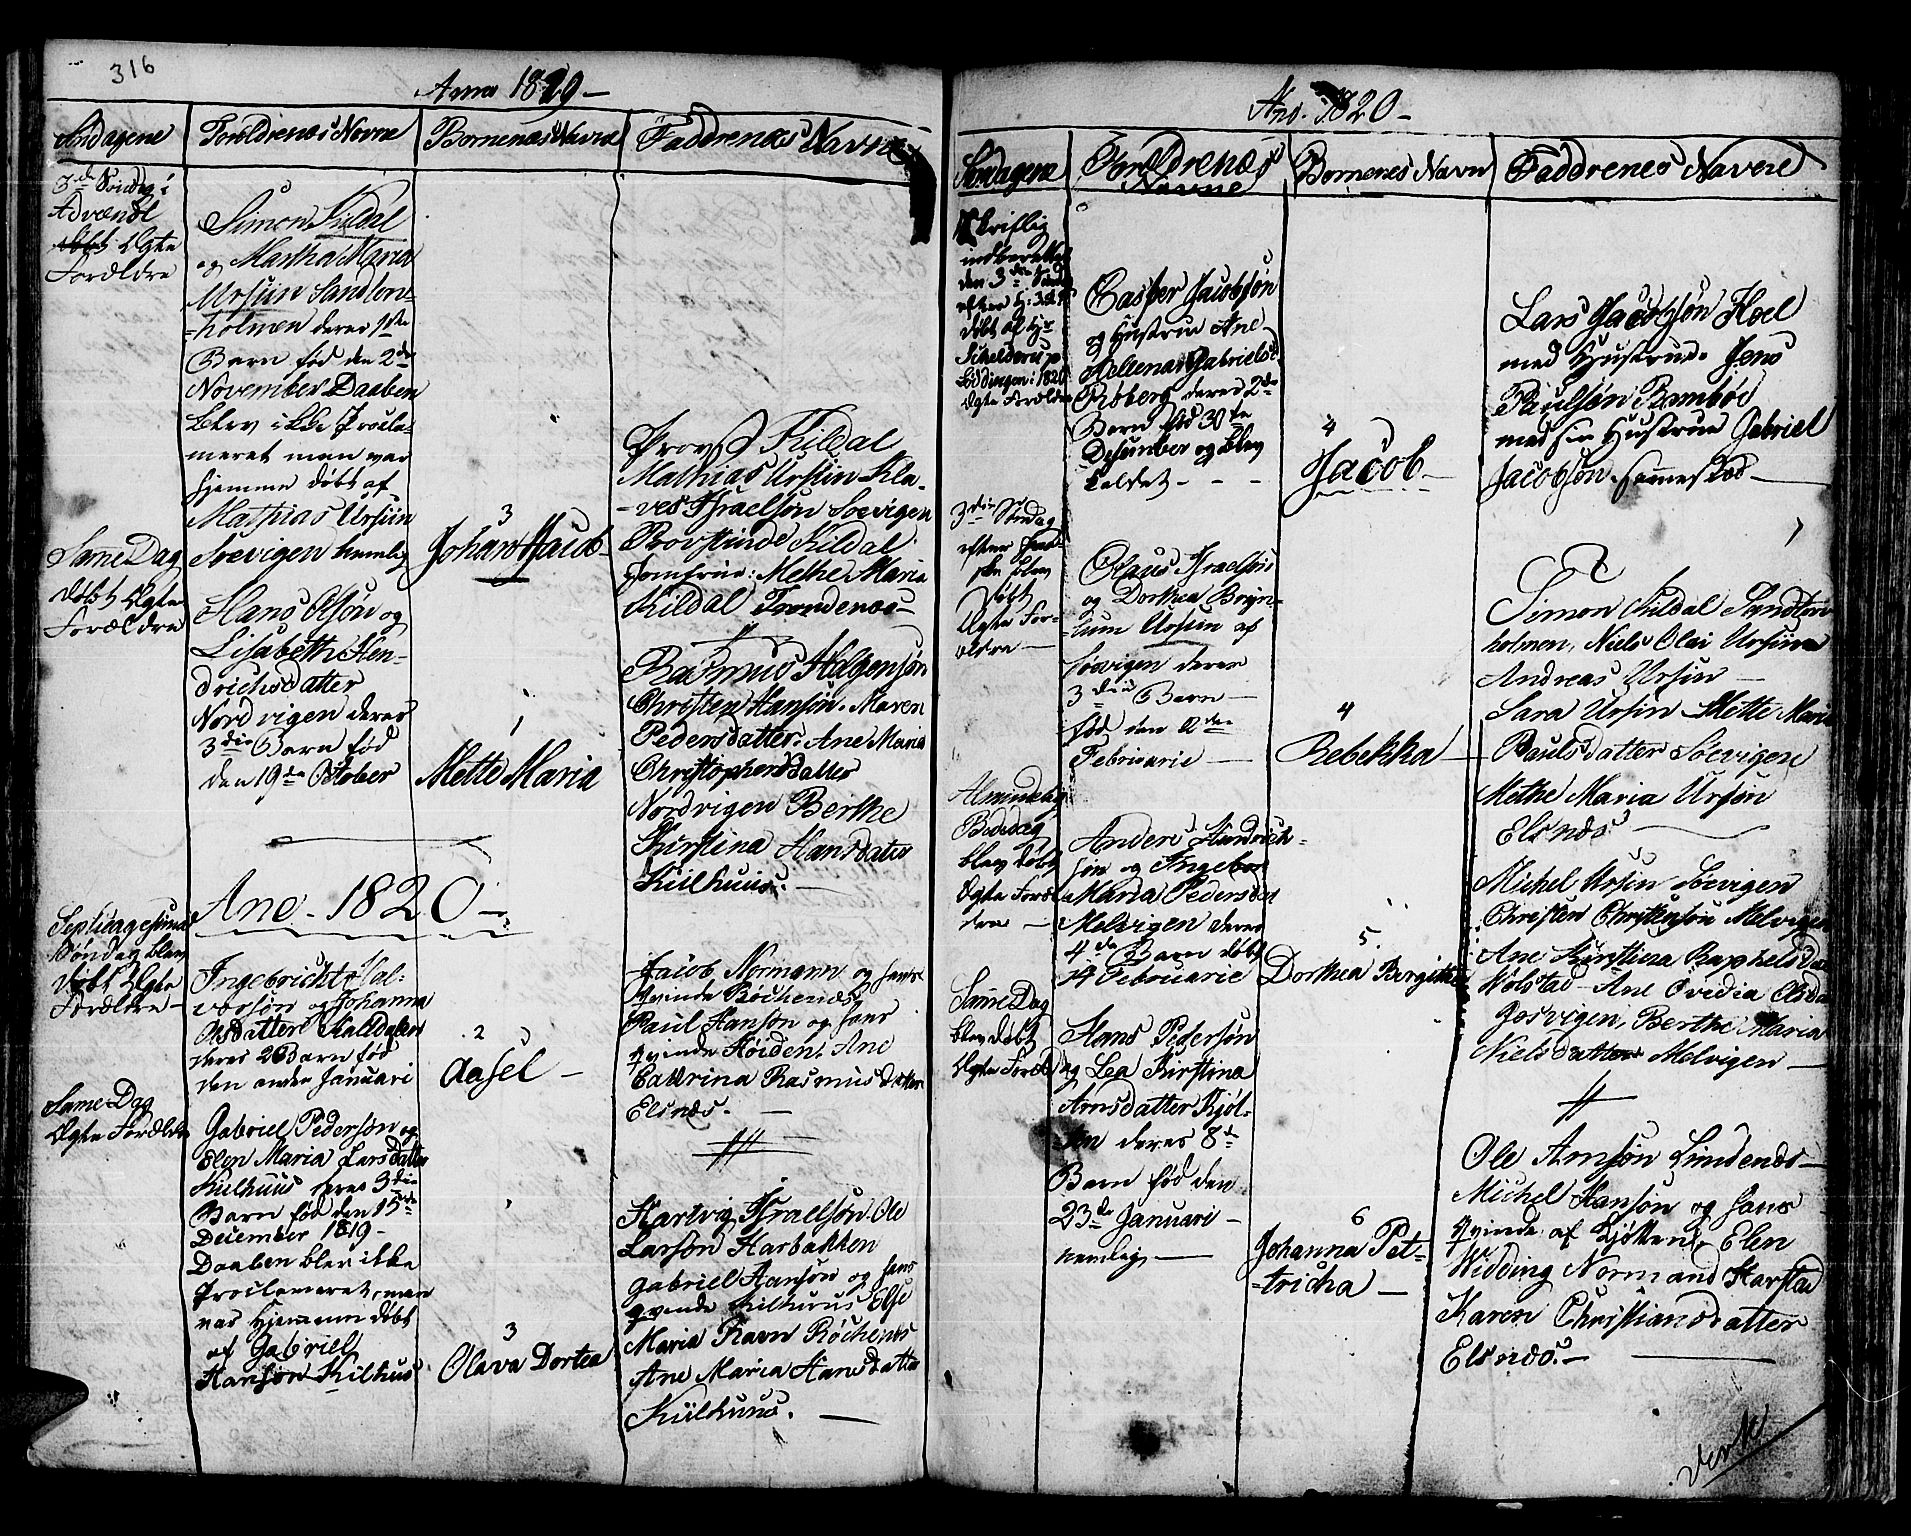 316
Anno 1819 –
Søndagene
Forældrenes Navne
Børnenes Navne
Faddrenes Navne
3de Søndag i
Advændt
døbt Ægte
Forældre
Simon Kildal
og Martha Maria
Ursiin Sandtorv-
-holmen deres 1ste
Barn fød den 2de
November Daaben
blev ikke Procla-
meret men var
hjemme døbt af
Mathias Ursiin
Soevigen nemlig
3
Johan Jacob
Provst Kildal
Mathias Ursiin Kla-
-ves Israelsøn Soevigen
Provstinde Kildal
Jomfrue: Methe Maria
Kildal Trondenæs –
Same Dag
døbt Ægte
Forældre
Hans Olsøn og
Lisabeth Hen-
drichsdatter
Nordvigen deres
3die Barn fød
den 19de October
1
Mette Maria
Rasmus Helgensøn
Christen Hansøn. Maren
Pedersdatter. Ane Maria
Christophersdatter
Nordvigen Berthe
Kirstina Hansdatter
Kiilhuus. –
Ano – 1820 –
Septuagesima
Søndag blev
døbt Ægte
Forældre –
Ingebricht Hal-
vorsøn og Johanna
Olsdatter Kalldalen
deres 2 Barn fød
den anden Januari
2
Aasel –
Jacob Normann og hans
Qvinde Røchenes
Paul Hansøn og hans
qvinde Høiden. Ane
Cathrina Rasmusdatter
Elsnæs. –
Same Dag
Ægte Forældre
Gabriel Pedersøn og
Elen Maria Larsdatter
Kiilhuus deres 3die
Barn fød den 15de
December 1819 –
Daaben blev ikke
Proclameret, men
var Hjemme døbt
af Gabriel
Hansøn Kilhus
3
Olava Dortea
Hartvig Israelsøn. Ole
Larsøn Harbakken
Gabriel Hansøn og hans
qvinde Kilhuus Else
Maria Ravn Røchenes
Ane Maria Hansdatter
Kiilhuus. –
Ano. 1820 –
Søndagene
Forældrenes
Navne
Børnenes Navn
Faddrenes Navne
Skriftlig
indberettet
den 3die Søndag
efter H: 3 K
døbt af Hr
Schelderup
Løddingen i 1820
Ægte Forældre
Casper Jacobsøn
og Hustrue Ane
Hellena Gabrielsd
Røberg deres 2de
Barn fød 30te
Desember og blev
kaldet – – –
4
Jacob –
Lars Jacobsøn Hoel
med Hustrue Jens
Paulsøn Rambøe
med sin Hustrue Gabriel
Jacobsøn
3die Søndag
efter
døbt
Ægte For-
ældre –
Olaus Israelsøn
og Dorthea Bryn-
-lum Ursiin af
Soevigen deres
3die Barn –
fød den
Februarie –
4
Rebekka –
Simon Kildal Sandtorv
holmen, Niels Olai Ursiin
Andreas Ursin –
Sara Ursin Mette Maria
Paulsdatter Soevigen
Methe Maria Ursin
Elsnæs –
Almindelig
Bededag
blev døbt
Ægte Foræl-
dre –
Anders Hendrich-
søn og Ingebor
Maria Pedersdat
Melvigen deres
4de Barn døbt
14 Februarie
5.
Dorthea Birgitte
Michel Ursin Soevigen
Christen Christensøn Melvigen
Ane Kirstina Raphelsdat
Wolstad – Ane Ovedia Olsdat
Gosvigen, Berthe Maria
Nielsdatter Melvigen –
Same Dag
blev døbt
Ægte Foræld
Hans Pedersøn
og Lea Kirstina
Arnsdatter Kjøt-
ten deres 8de
Barn fød den
23de Januari –
nemlig –
6
Johanna Pet-
-tricha –
Ole Arnsøn Lundenæs –
Michel Hansøn og hans
qvinde af Kjøtten, Elen
Widding Normand Harstad
Karen Christiansdatter
Elsnæs. –
Verte